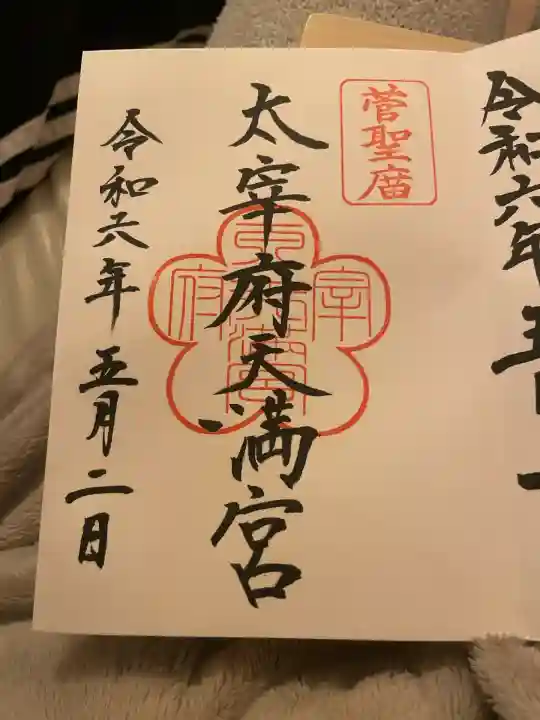 令和六年五
菅聖廟
太宰府天満宮
令和六年 五月二日